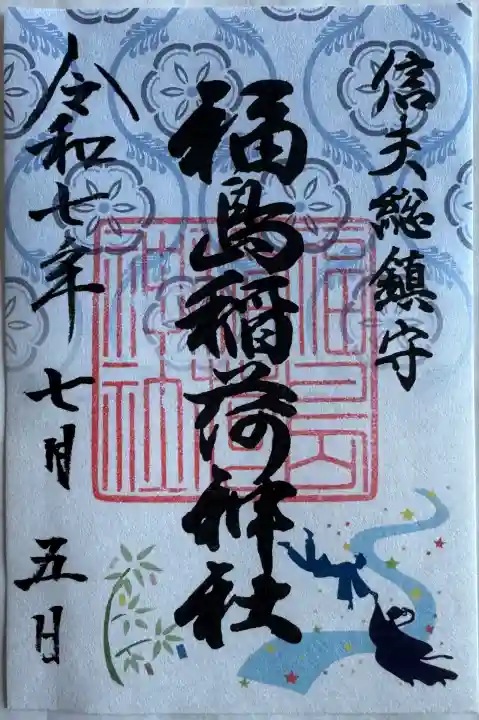 信夫総鎮守
福島稲荷神社
令和七年七月五日